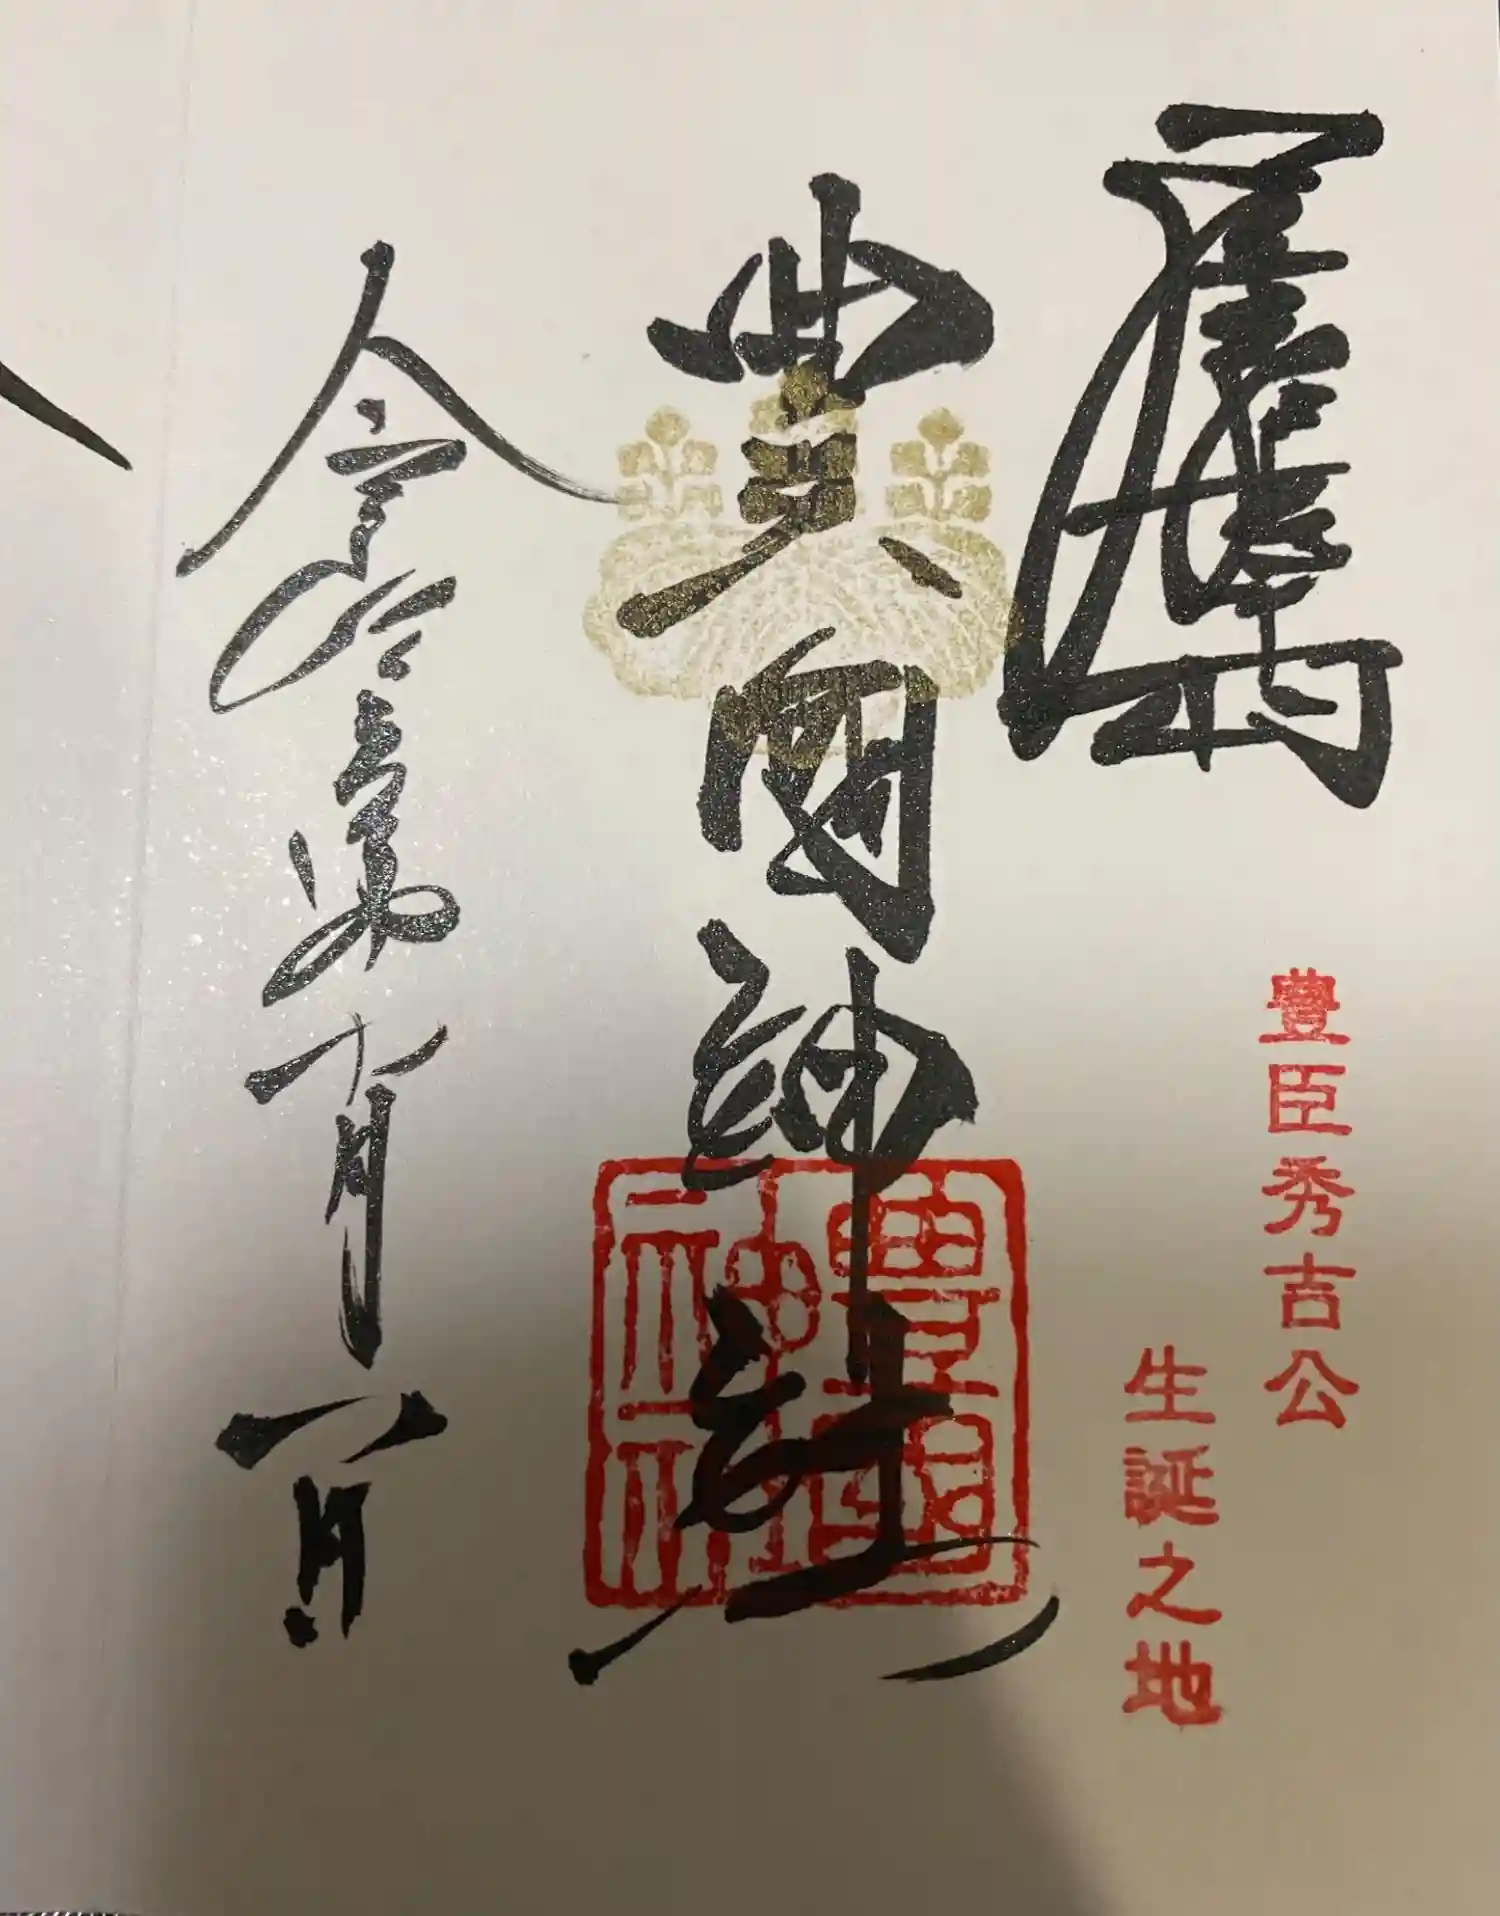 豐臣秀吉公
生誕之地
豊國神社
豊國神社
令和 年十月 日